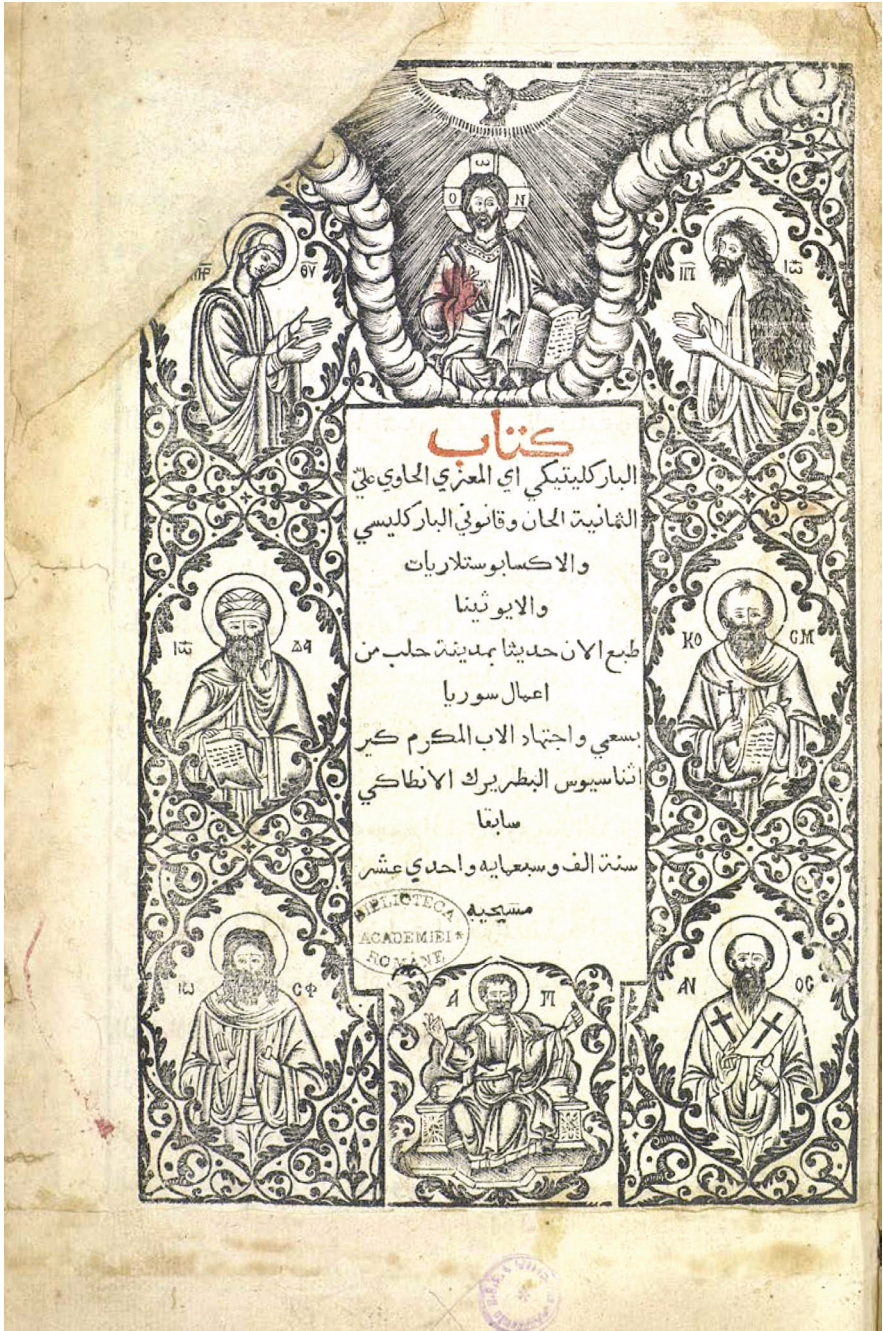 ω
Ο Ν
ΜΗΡ ΘΥ
ΠΤ ΙѠ
كتاب
الباركليتيكي اي المعزي الحاوي علىّ
الثمانية الحان وقانوني الباركليسي
والاكسابوستلاريات
والايوثينا
طبع الان حديثا بمدينة حلب من
اعمال سوريا
بسعي واجتهاد الاب المكرم كير
اثناسيوس البطريرك الانطاكي
سابقا
سنة الف وسبعمايه واحدي عشر
مسيحيه
ΙѠ ΔΑ
ΚΟ СΜ
BIBLIOTECA
ACADEMIEI *
ROMÂNE
ΙѠ СΦ
Α Π
ΑΝ ΟС